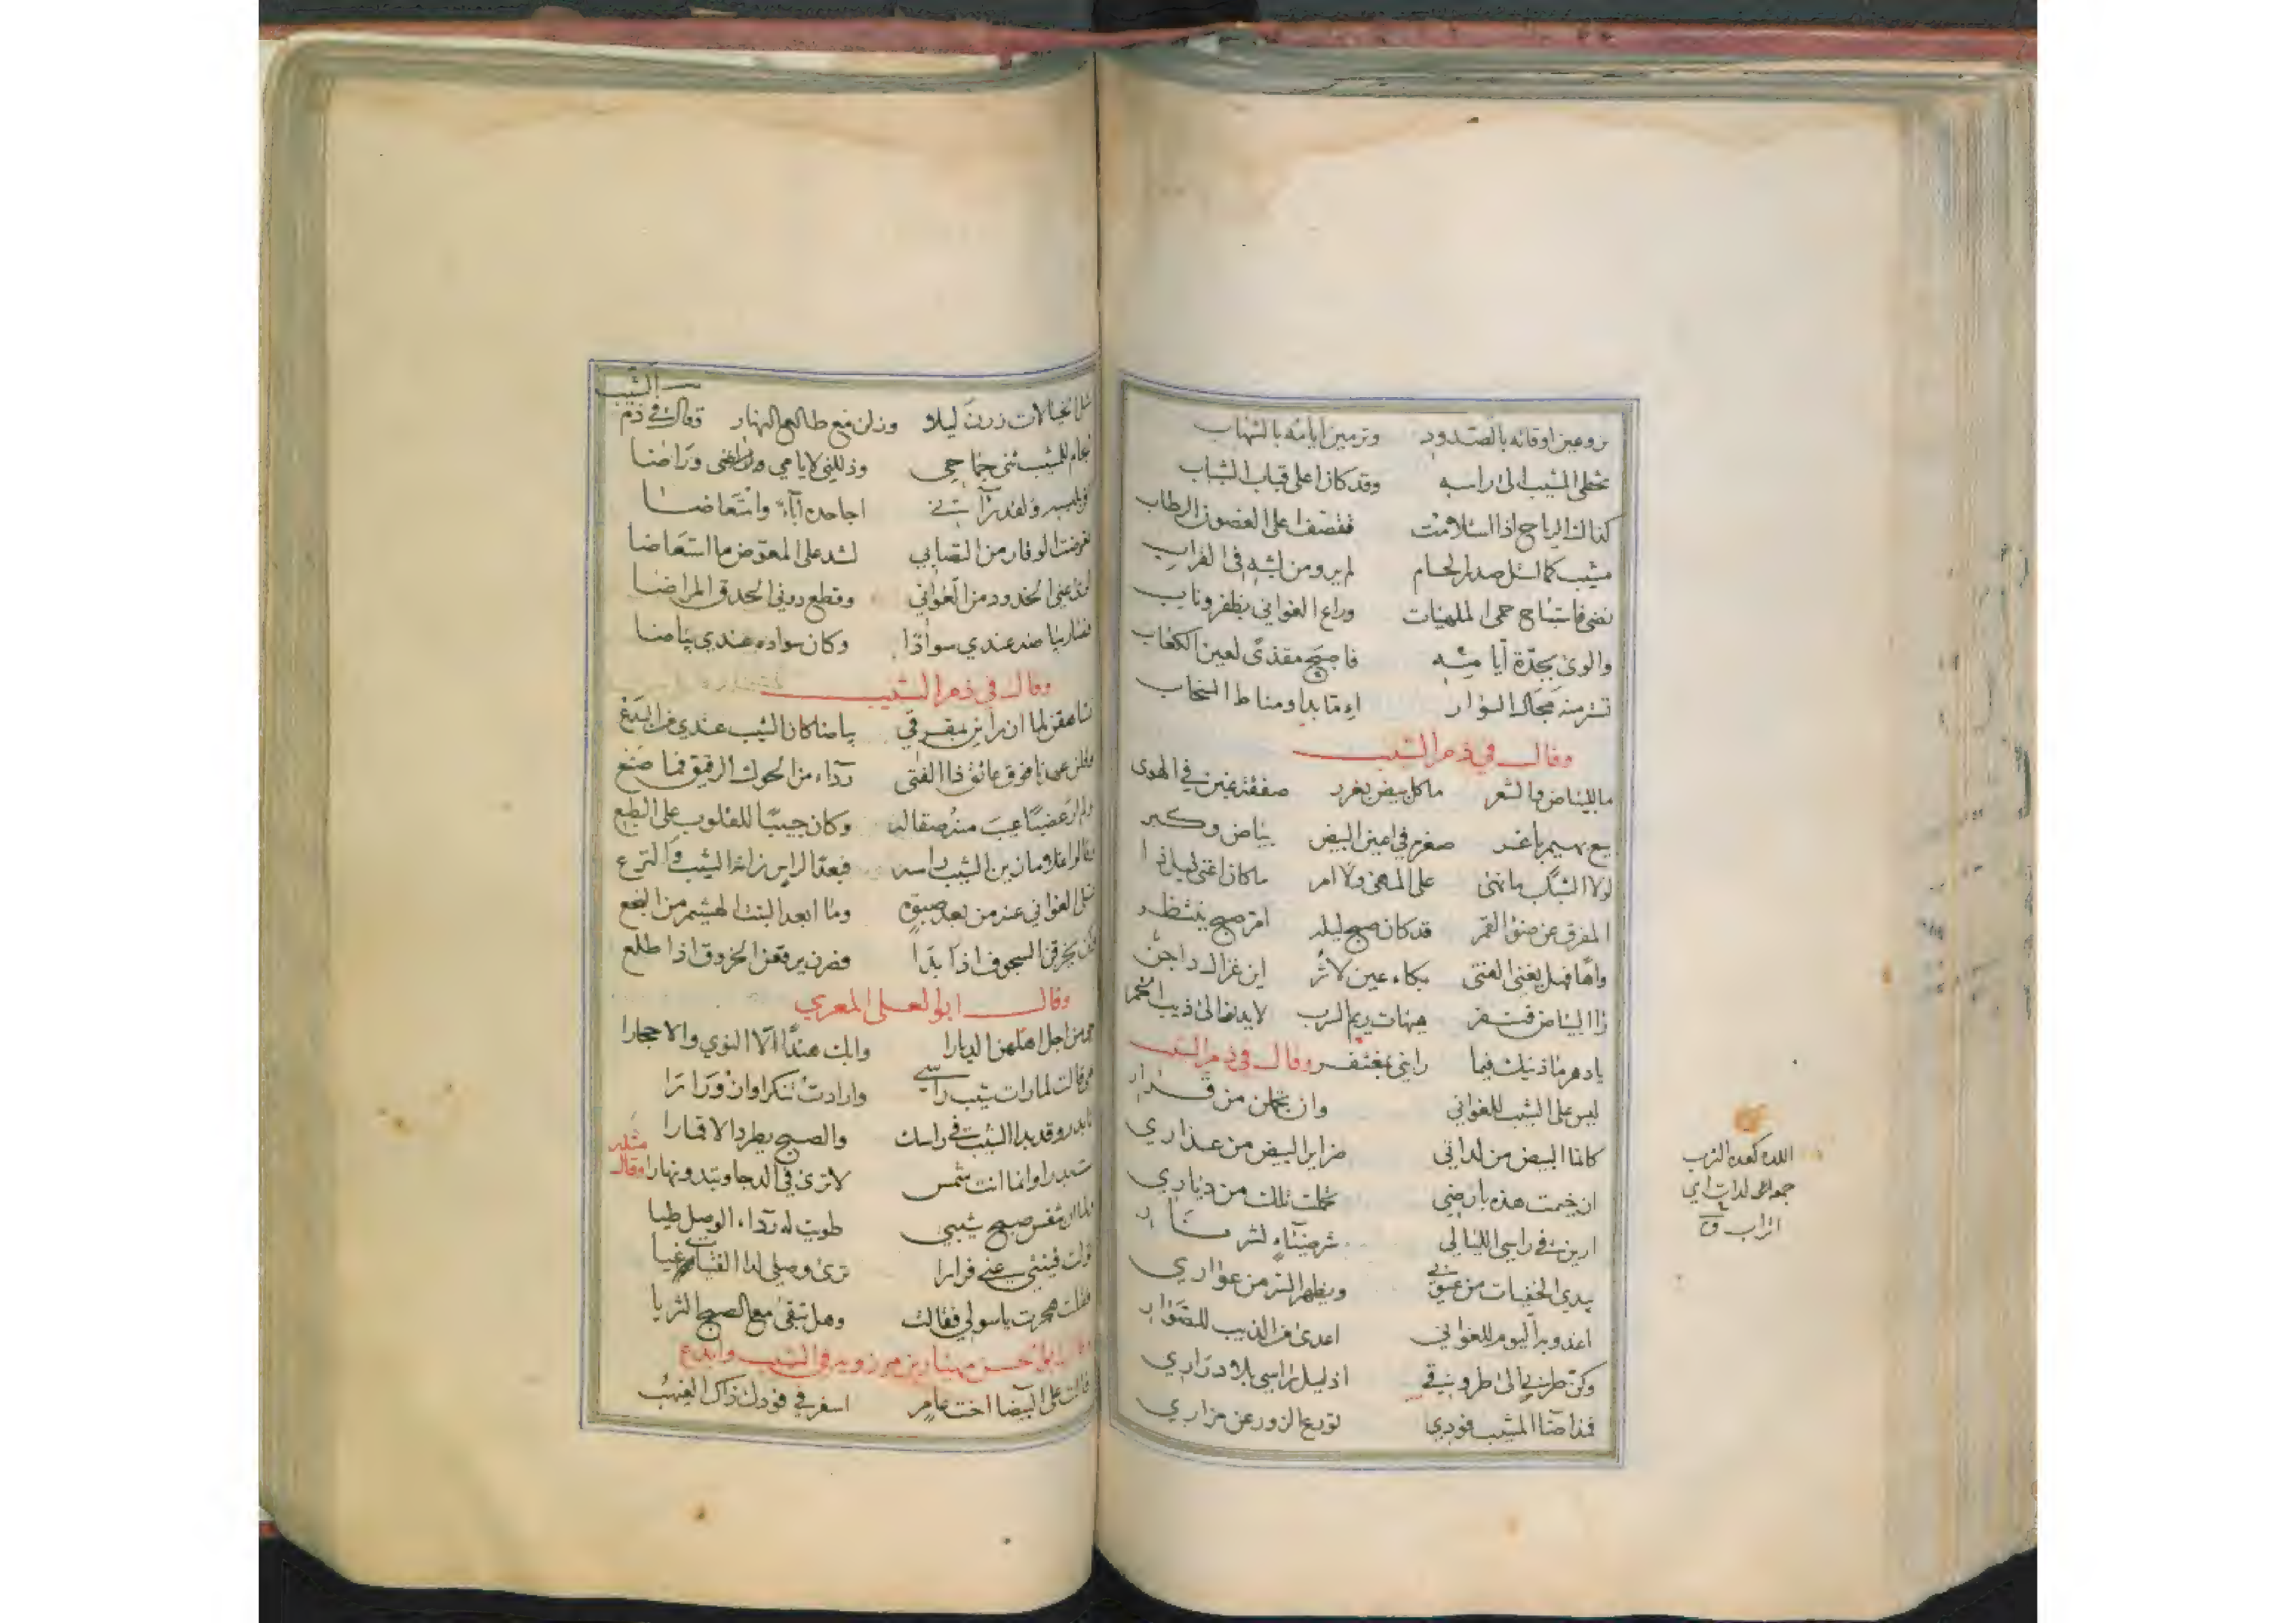 يروعن اوقاته بالصدود وترمين ايامه بالشهاب
تخطى المشيب الى راسه وقد كان اعلى قباب الشباب
كذلك الرياح اذا استلامت تقصف اعلى الغصون الرطاب
مشيب كما استل صدر الحسام لم يرو من لبثه في القراب
نضى فاستباح حمى الملهيات وراع الغواني بظفر وناب
والوى بجدة ايامه فاصبح مقذى لعين الكعاب
تستر منه مجال السوار اذا ما بدا ومناط السخاب
وقال في ذم الشيب
ما للبياض والشعر ما كل بيض بغرر صفقة غبن في الهوى
بيع بهيم باغر صغره في اعين البيض بياض وكبر
لولا الشباب ما نهى على المهى ولا امر ما كان اغنى ليل ذا
المفرق عن ضوء القمر قد كان صبح ليله امر صبح ينتظر
واها فهل يغني الفتى بكاء عين لاثر اين غزال داجن
راى البياض فنفر هيهات ريم السرب لا يدنو الى ذيب الخمر
يا دهر ما ذنبك فيما رابني بمغتفر وقال في ذم الشيب
ليس على الشيب للغواني وان تجملن من قرار
كانما البيض من لداتي ضراير البيض من عذاري
ان خيمت هذه بارضي تحملت تلك من دياري
ارين في راسي الليالي شر ضياء لشر نار
يبدي الخفيات من عيوبي ويظهر السر من عواري
اغدو به اليوم للغواني اعدى من الذيب للصوار
وكن طربي الى طروقي اذ ليل راسي بلا دراري
فمذ اضاء المشيب فودي تورع الزور عن مزاري
اللدة كعدة الترب
جمعها لدات اي
اتراب ق
الشيب
مثل الخيالات زرن ليلا وزلن مع طالع النهار وقال في ذم
لجام للمشيب ثنى جماحي وذللني لايامي وراضا
اجاذبه اباء وامتعاضا
تعوضت الوقار من التصابي اشد على المعوض ما استعاضا
لوى عني الخدود من الغواني وقطع دوني الحدق المراضا
فصار بياضه عندي سوادا وكان سواده عندي بياضا
وقال في ذم الشيب
تشاهقن لما ان راين بمفرقي بياضا كان الشيب عندي من البدع
وقلن عهدنا فوق عاتق ذا الفتى رداء من الحوك الرقيق فما صنع
ولم ار عضبا عيب منه صقاله وكان حبيبا للقلوب على الطبع
وقالوا غلام زين الشيب راسه فبعدا لراس زانه الشيب والنزع
تسلى الغواني عنه من بعد صبوة وما ابعد النبت الهشيم من النجع
وكن يخرقن السجوف اذا بدا فصرن يرقعن الخروق اذا طلع
وقال ابو العلا المعري
من اجل اهلهن الديارا وابك هندا لا النوي والاحجارا
هي قالت لما رات شيب راسي وارادت تنكرا وازورارا
انا بدر وقد بدا الشيب في راسك والصبح يطرد الاقمارا
لست بدرا وانما انت شمس لا ترى في الدجا وتبدو نهارا وقال
مثله
ولما ان تنفس صبح شيبي طويت له رداء الوصل طيا
تولت فينثني عني فرارا ترى وصلي لدا الفتيات غيا
فقلت هجرت يا سولي فقالت وهل تبقى مع الصبح الثريا
وقال ابو الحسن مهيار بن مرزويه في الشيب وابدع
قالت على البيضا اخت عامر اسفر في فودك ذاك الغيهب